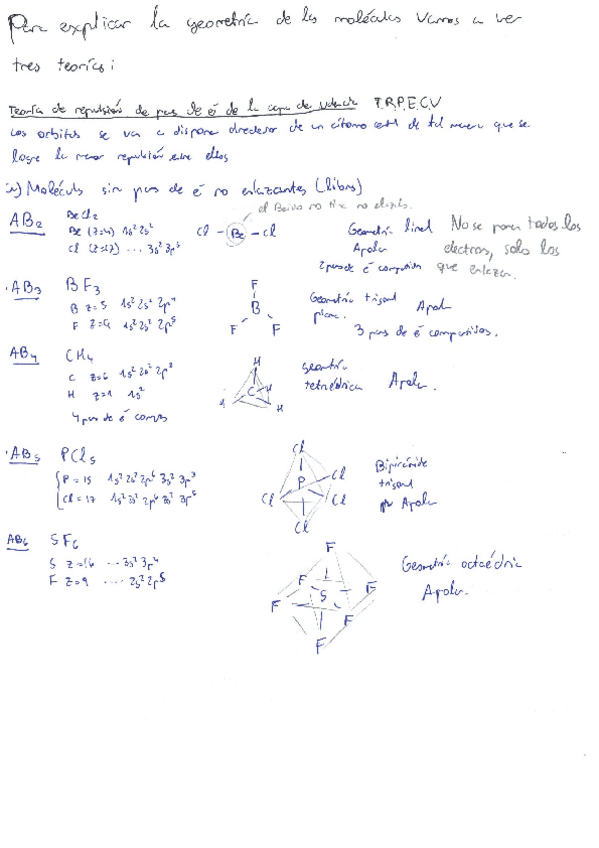 Para explicar la geometría de las moléculas vamos a ver
tres teorías:
Teoría de repulsión de pares de é de la capa de valencia T.R.P.E.C.V
Los orbitas se van a disponer alrededor de un átomo de tal manera que se
logre la menor repulsión entre ellos
Moléculas sin pares de é no enlazantes (libres)
el Berilio no tiene no
AB2 BeCl2
Be (Z=4) 1s² 2s²
Cl (Z=17) ... 3s² 3p⁵
Cl - Be - Cl
Geometría lineal
Apolar
2 pares de é compartidos
No se para todos los
electrones, solo los
que enlazan.
AB3 BF3
B Z=5 1s² 2s² 2p¹
F 1s² 2s² 2p⁵
F
B
F F
Geometría trigonal
plana.
Apolar
3 pares de é compartidos.
AB4 CH4
C Z=6 1s² 2s² 2p²
H Z=1
4 pares de é comps
H
C H
H H
geometría
tetraédrica
Apolar.
AB5 PCl5
P = 15 1s² 2s² 2p⁶ 3s² 3p³
Cl = 17 1s² 2s² 2p⁶ 3s² 3p⁵
Cl
Cl
P
Cl Cl
Cl
Bipirámide
trigonal
Apolar
AB6 SF6
S Z=16 ... 3s² 3p⁴
F Z=9 ... 2s² 2p⁵
F
F F
S
F F
F
Geometría octaédrica
Apolar.